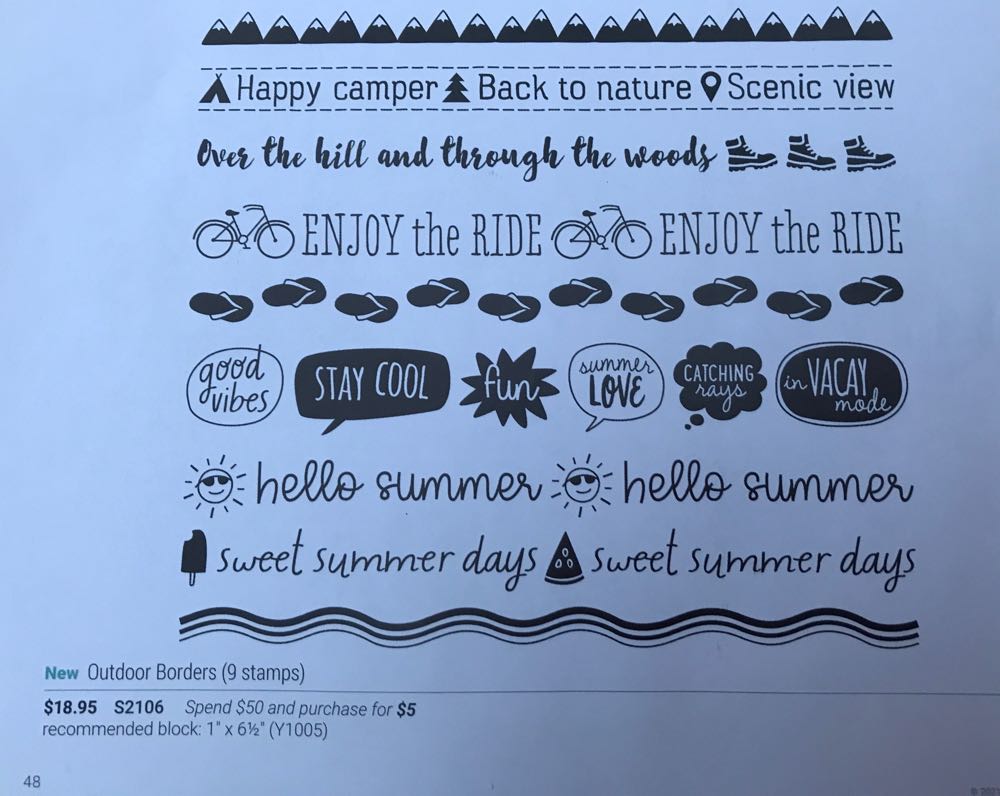 Happy camper Back to nature Scenic view
Over the hill and through the woods
ENJOY the RIDE ENJOY the RIDE
good vibes STAY COOL fun summer LOVE CATCHING rays in VACAY mode
hello summer hello summer
sweet summer days sweet summer days
New Outdoor Borders (9 stamps)
$18.95 S2106 Spend $50 and purchase for $5
recommended block: 1" x 6½" (Y1005)
48